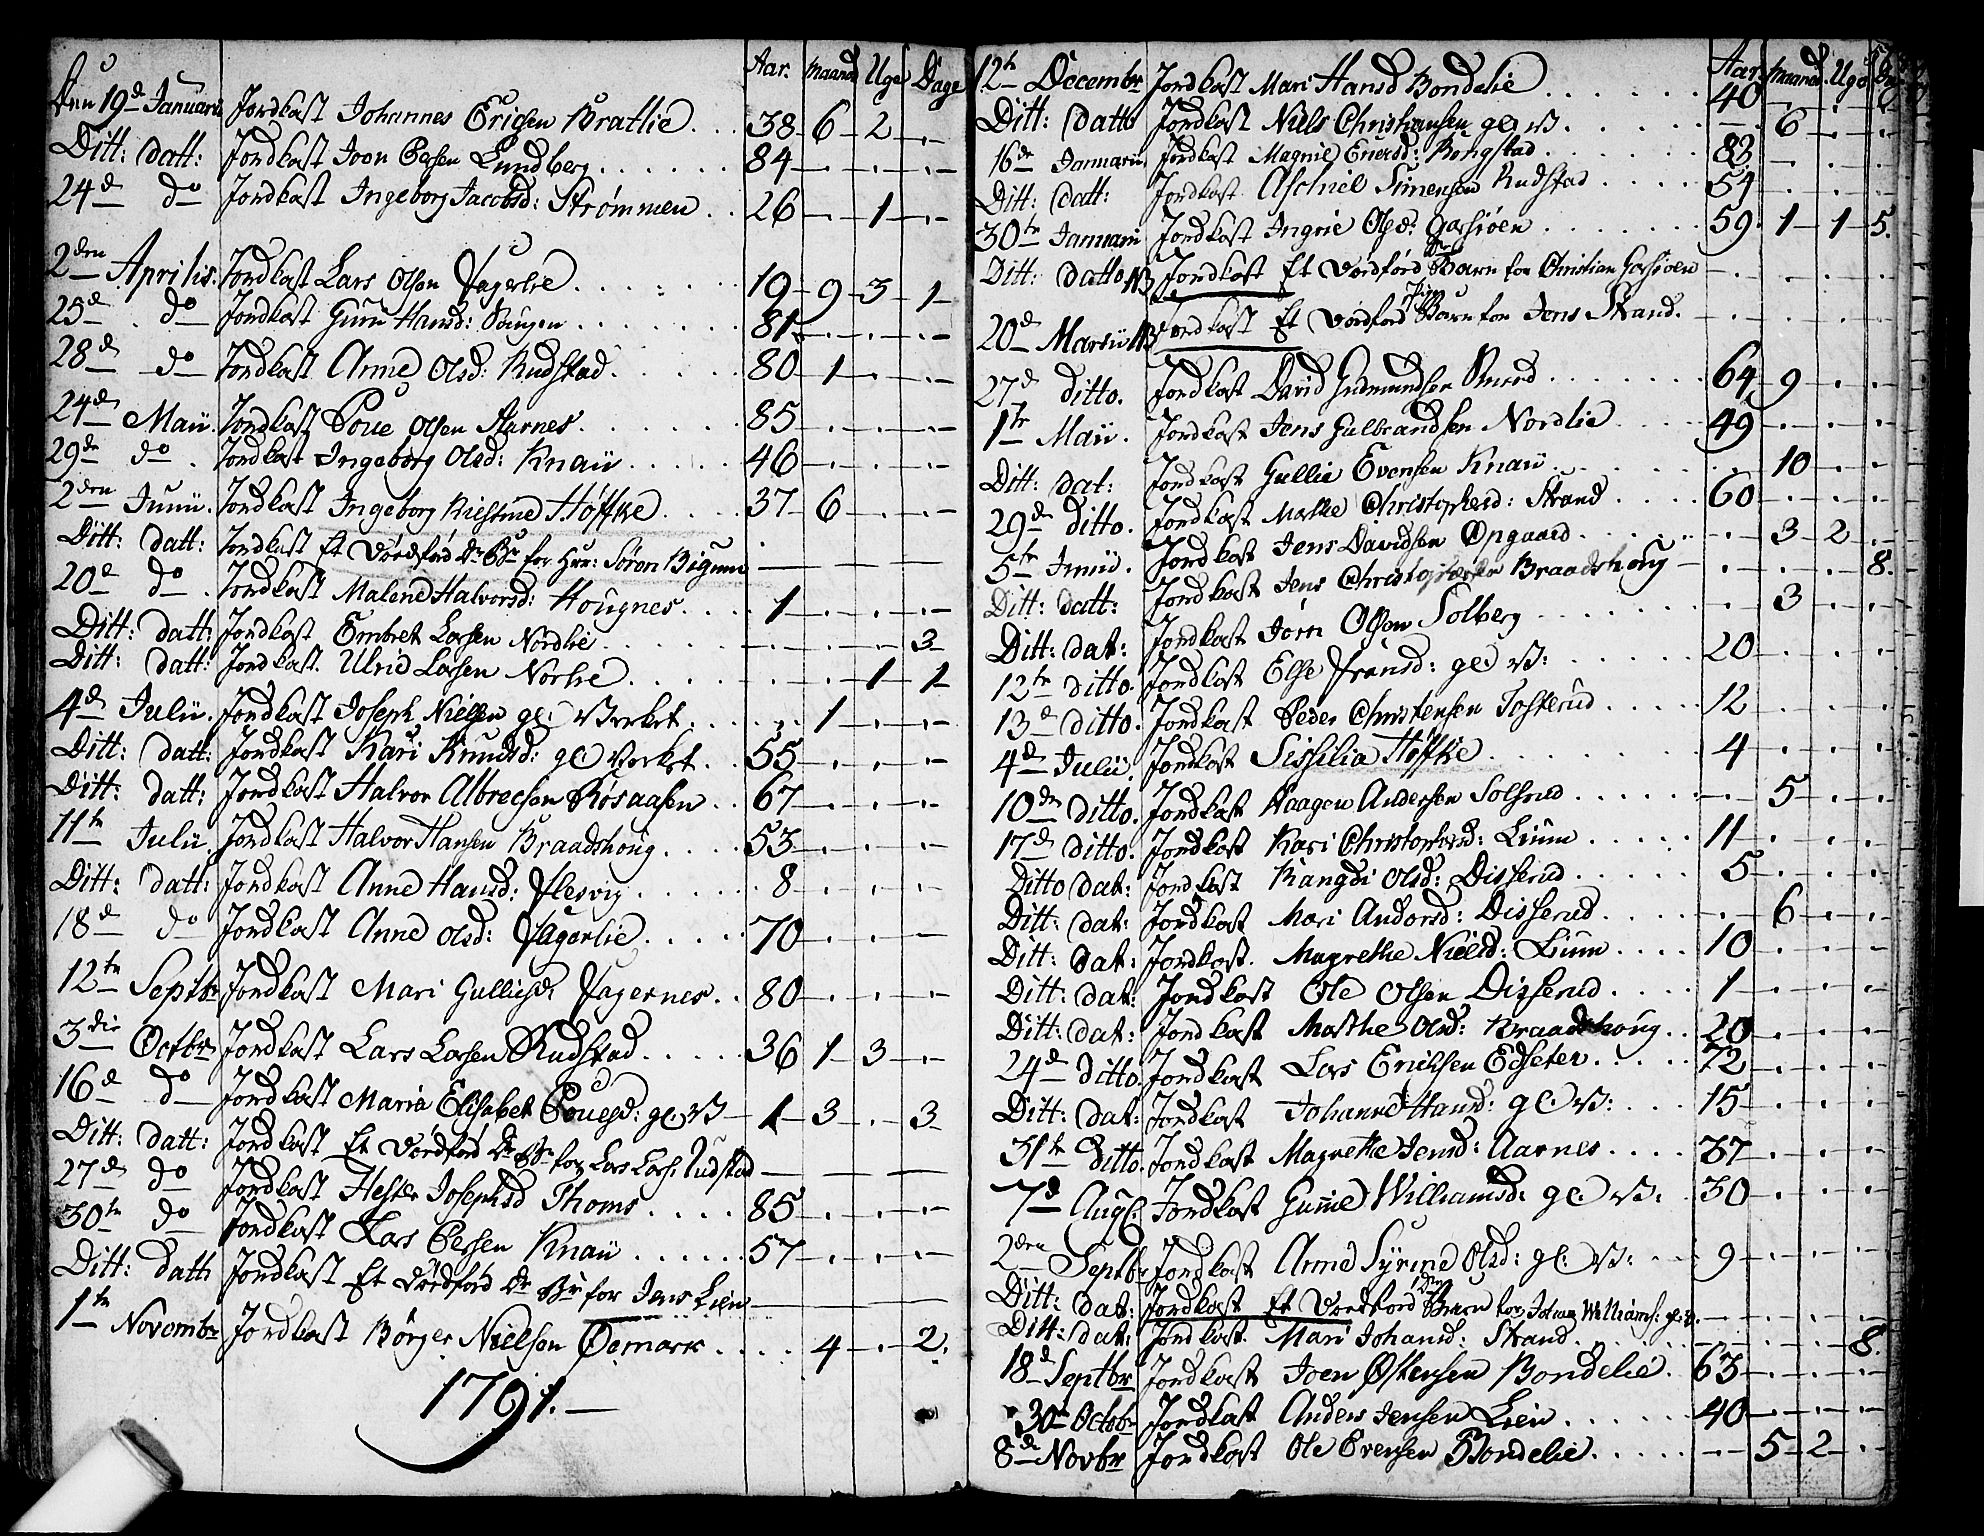 Aar. Maand Uge Dage
Den 19d Januarii Jordkast Johannes Ericsen Bratlie . . . 38 6 2 . .
Ditt: datt: Jordkast Joon Persen Lundberg . . . 84
24d do Jordkast Ingeborg Jacobsd: Strømmen . . 26 . 1 .
2den Aprilis. Jordkast Lars Olsen Fagerlie . . . 19 9 3 1
25d do Jordkast Guru Hansd: Saugen . . . 81
28d do Jordkast Anne Olsd: Rudstad . . . 80 1 . .
24d Maii. Jordkast Poue Olsen Aarnes . . . 85
29de do. Jordkast Ingeborg Olsd: Knaii . . . 46
2den Junii. Jordkast Ingeborg Kiestine Høffke . . . 37 6 . .
Ditt: datt: Jordkast Et Dødfød Dr Bn for Hrr: Søren Bigum
20d do. Jordkast Malene Halvorsd: Hougnes . . . 1
Ditt: datt: Jordkast Embret Larsen Nordlie . . . 3
Ditt: datt: Jordkast Ulrid Larsen Norlie . . . 1 1
4d Julii. Jordkast Joseph Nielsen gl: Verket . . . 1 . .
Ditt: datt: Jordkast Kari Knudsd: gl Verket . . 55
Ditt: datt: Jordkast Halvor Albrecsen Røsaasen . . 67
11te Julii. Jordkast Halvor Hansen Braadshoug . . . 53
Ditt: datt: Jordkast Anne Hansd: Flesvig . . . 8
18d do Jordkast Anne Olsd: Fagerlie . . . 70
12te Septbr Jordkast Mari Gulliesd: Fagernes . . 80
3die Octbr Jordkast Lars Larsen Rudstad . . . 36 1 3 .
16d do Jordkast Maria Elisabet Pouesd: gl: V 1 3 . 3
Ditt: datt: Jordkast Et Dødfød Dr Bn for Lars Lars: Rudstad
27d do Jordkast Hester Josephsd Thoms . . . 85
30te do Jordkast Lars Persen Knaii . . . 57
Ditt: datt: Jordkast Et Dødfød Dr Bn for Jens Lien
1te Novembr Jordkast Børger Nielsen Øemark . . . 4 . 2.
1791.
Aar Maand. Uge Dag
12te Decembr Jordkast Mari Hansd Bondelie . . . 40
Ditt: datto Jordkast Niels Christiansen gl: V . . . 6 . .
16de Januarii Jordkast Magnil Enersd: Rongstad . . . 83
Ditt: datt: Jordkast Aschiel Simensen Rudstad . . . 54
30te Januarii Jordkast Ingrie Olsd: Gassiøen . . . 59 1 1 5.
Ditt: datto NB Jordkast Et Dødfød Barn for Christian Gassiøen
20d Martii NB Jordkast Et Dødfød Barn for Jens Strand.
27d ditto. Jordkast David Gudmundsen Smed . . . 64 9 . .
1te Maii. Jordkast Jens Gulbrandsen Nordlie . . . 49
Ditt: dat: Jordkast Gullie Evensen Knaii . . . 10 . .
29d ditto. Jordkast Marthe Christophersd: Strand . . . 60
5te Junii. Jordkast Jens Davidsen Opgaard . . . 3 2 .
Ditt: datt: Jordkast Jens Christophersen Braadshoug . . . 8.
Ditt: dat: Jordkast Jørn Olsen Solberg . . . 3 . .
12te ditto. Jordkast Else Fransd: gl: V: . . . 20
13d ditto. Jordkast Peder Christensen Tosterud . . . 12
4d Julii. Jordkast Sissilia Høffke . . . 4
10de ditto. Jordkast Haagen Andersen Solsrud . . . 5 . .
17d ditto. Jordkast Kari Christophersd: Lium . . . 11
Ditto dat: Jordkast Rangdi Olsd: Disserud . . . 5
Ditt: dat: Jordkast Mari Andersd: Disserud . . . 6 . .
Ditt: dat: Jordkast. Magrethe Nielsd: Lium . . . 10
Ditt: dat: Jordkast Ole Olsen Disserud . . . 1
Ditt: dat: Jordkast Marthe Olsd: Braadshoug . . 20
24d ditto. Jordkast Lars Eriksen Edseter . . . 72
Ditt: dat: Jordkast Johanne Hansd: gl: V: . . . 15
31te ditto. Jordkast Magrethe Jensd: Aarnes . . . 37
7d Aug: Jordkast Gunne Williamsd: gl: V: . 30
2den Septbr Jordkast Anne Syrine Olsd: gl: V: . . 9
Ditt: dat: Jordkast Et Dødfød Barn for Johan Williams: gl: V.
Ditt: dat: Jordkast. Mari Johansd: Strand . . . 8.
18d Septbr Jordkast Joen Østensen Bondelie . 63
30te Octobr Jordkast Anders Jensen Lien . . . 40
8de Novbr Jordkast Ole Evensen Bondelie . . . 5 2 .